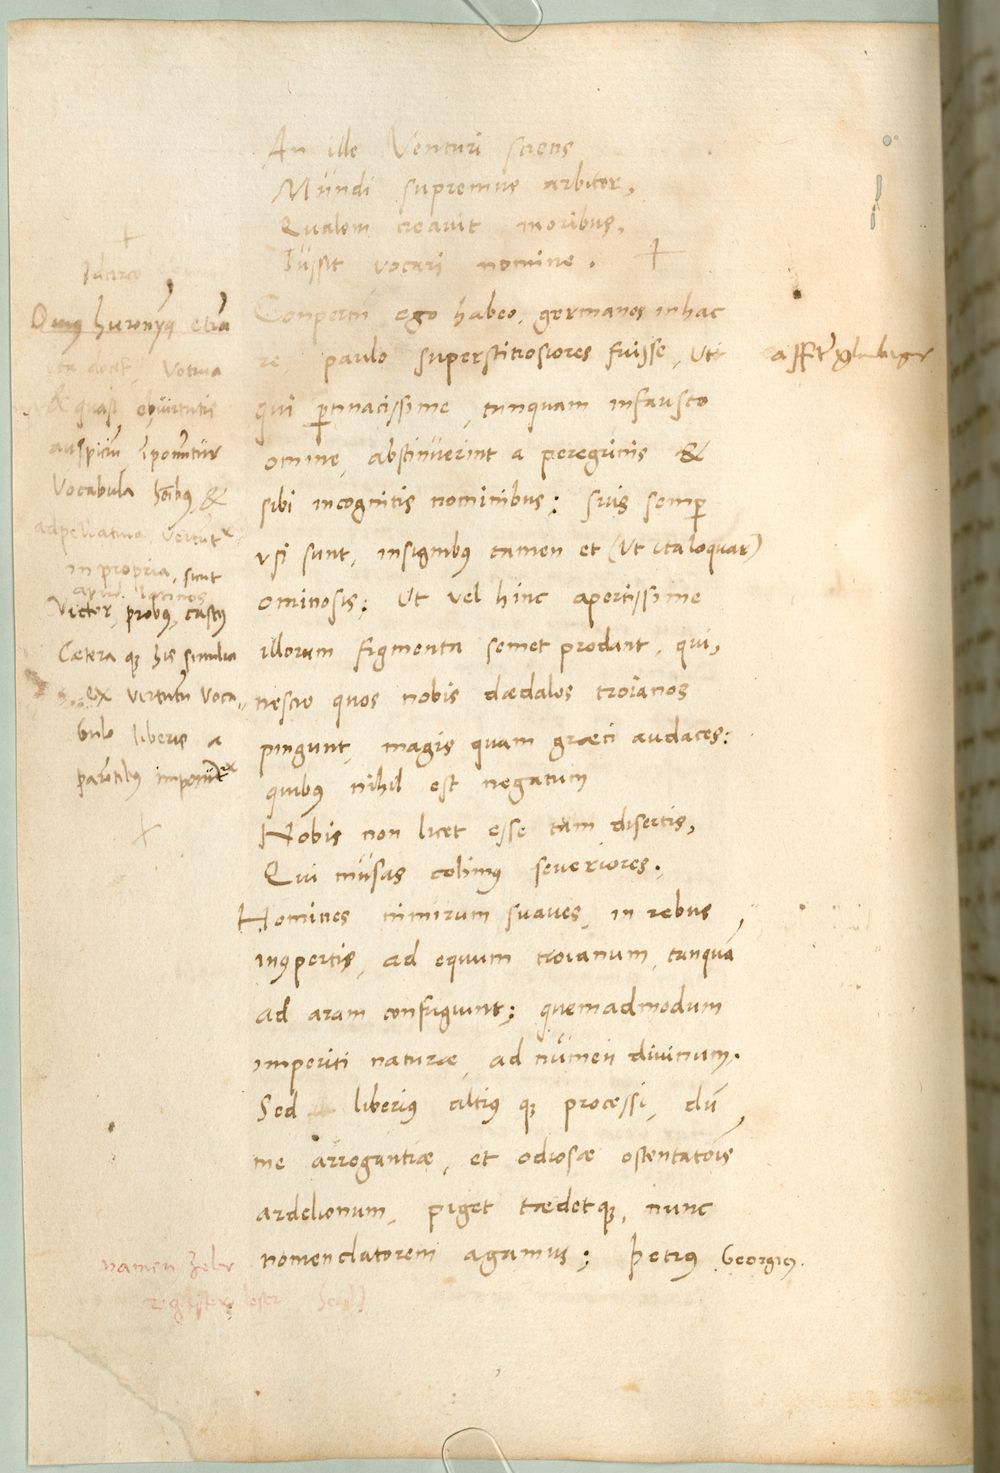 An ille Venturi sciens
Mundi supremus arbiter,
Qualem creavit moribus,
Iussit vocari nomine. +
Conpertũ ego habeo, germanos in hac
re paulo superstitiosiores fuisse, Uti
qui ꝑtinacissime, tanquam infausto
omine, abstinuerint a peregrinis &
sibi incognitis nominibus: suis semꝑ
vsi sunt, insignibꝫ tamen et (Ut ita loquar)
ominosis: Ut vel hinc apertissime
illorum figmenta semet prodant, qui,
nescio quos nobis dædalos troianos
pingunt, magis quam græci audaces:
quibꝫ nihil est negatum
Nobis non licet esse tam disertis,
Qui musas colimꝰ severiores.
Homines nimirum suaues, in rebus
inꝯpertis, ad equum troianum, tanquã
ad aram confugiunt: quemadmodum
imperiti naturæ, ad numen divinum.
Sed liberiꝰ altiꝰ qꝫ processi, dũ
me arrogantiæ, et odiosæ ostentatõis
ardelionum, piget tædetqꝫ, nunc
nomenclatorem agamus: Petrꝰ Georgiꝰ.
+
Idcirco
etiã
Votiva
& quasi ob virtutis
auspiciũ ĩponuntur
Vocabula hoĩbꝫ &
adpellativa, vertũtʳ
in propria, sunt
apud latinos
Victor, probꝰ, castꝰ
Cætera qꝫ his similia
ex virtutũ voca
bulo liberis a
parẽtibꝫ imponũtʳ
+
namen